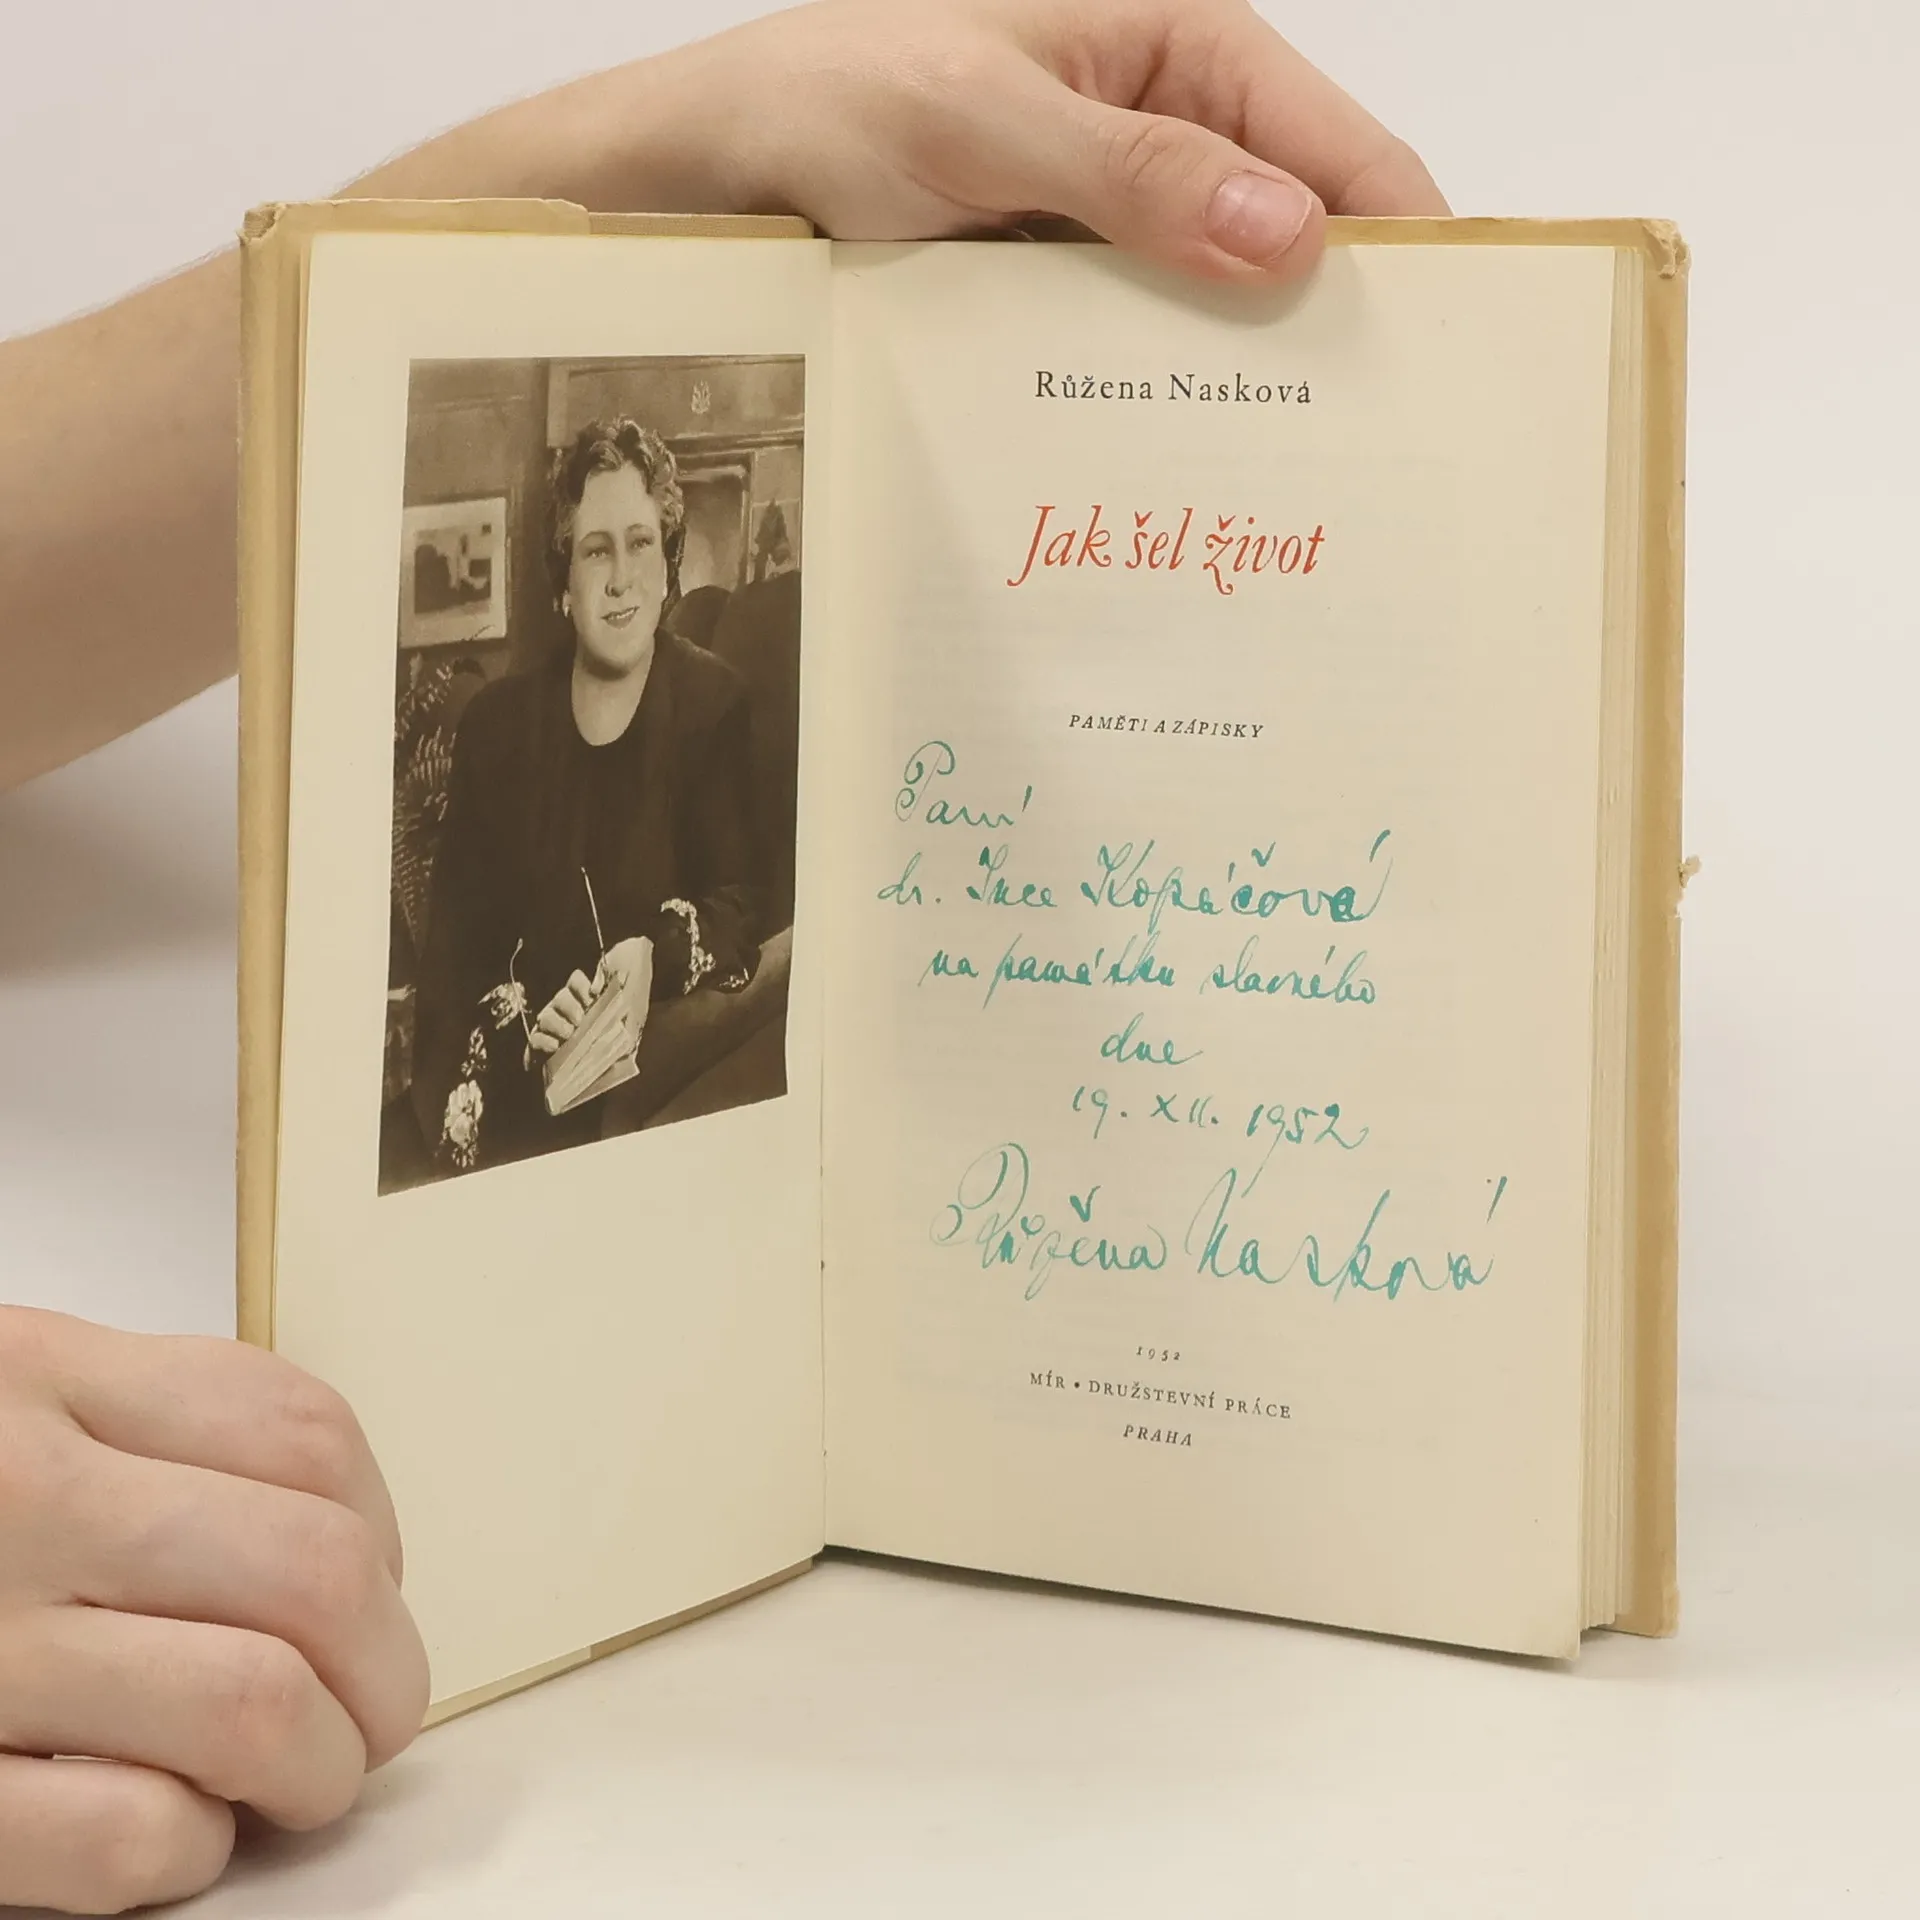 Růžena Nasková
Jak šel život
PAMĚTI A ZÁPISKY
Paní
dr. Ince Kopáčová
na památku slavného
dne
19. XII. 1952
Růžena Nasková
1952
MÍR • DRUŽSTEVNÍ PRÁCE
PRAHA